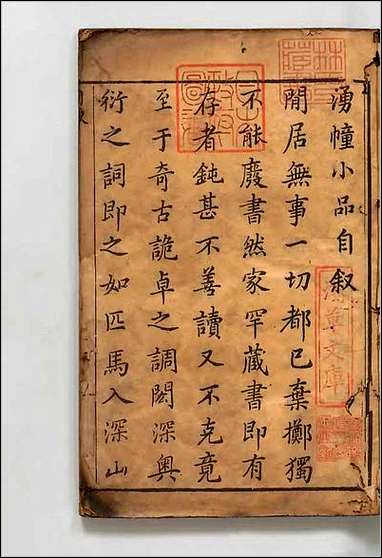 湧幢小品自叙
閒居無事一切都已棄擲獨
不能廢書然家罕藏書即有
存者鈍甚不善讀又不克竟
至于奇古詭卓之調閎深奥
衍之詞即之如匹馬入深山